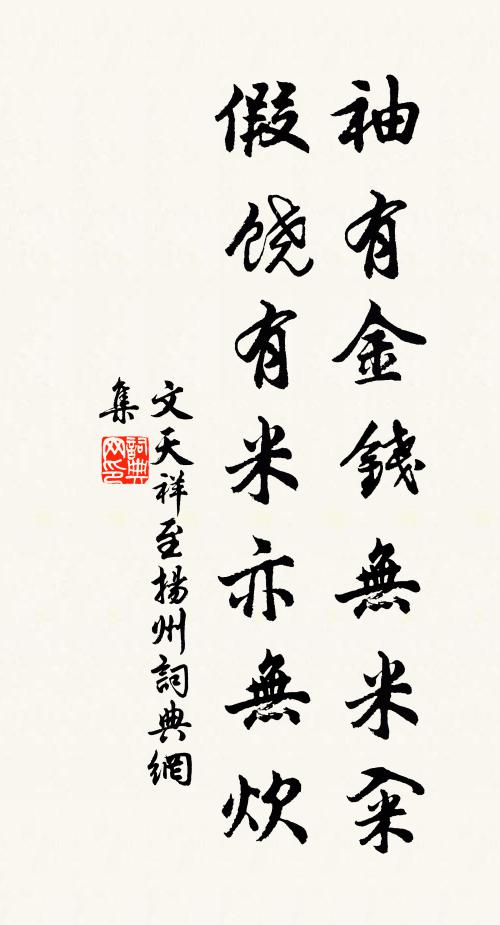 袖有金錢無米籴
假饶有米亦無炊
文天祥至揚州詞典網
集
詞典
网印